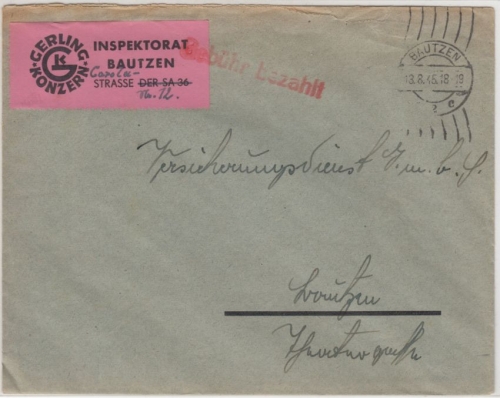 GERLING KONZERN
GK
INSPEKTORAT
BAUTZEN
Carola-
STRASSE DER SA 36
Nr. 12.
Gebühr bezahlt
BAUTZEN
3.8.45.18-19
2 c
Versicherungsdienst G.m.b.H.
Bautzen